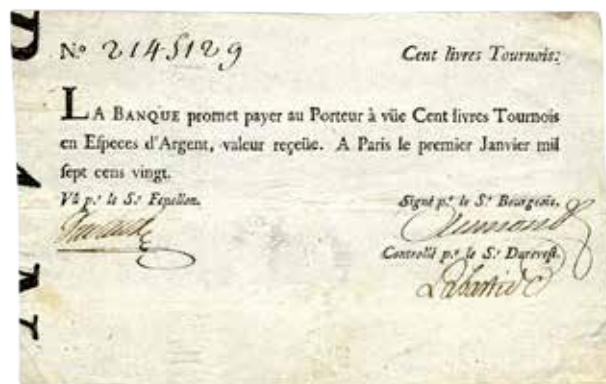 N.o 2145129 Cent livres Tournois:
LA BANQUE promet payer au Porteur à vüe Cent livres Tournois
en Especes d'Argent, valeur reçeüe. A Paris le premier Janvier mil
sept cens vingt.
Vû p.r le S.r Fenellon. Signé p.r le S.r Bourgeois.
Controllé p.r le S.r Durevest.